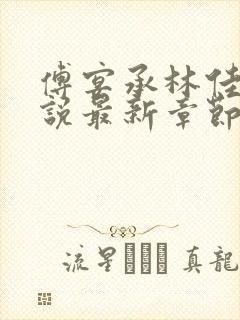 傅宴承林佳
說最新章節
流星 真龍